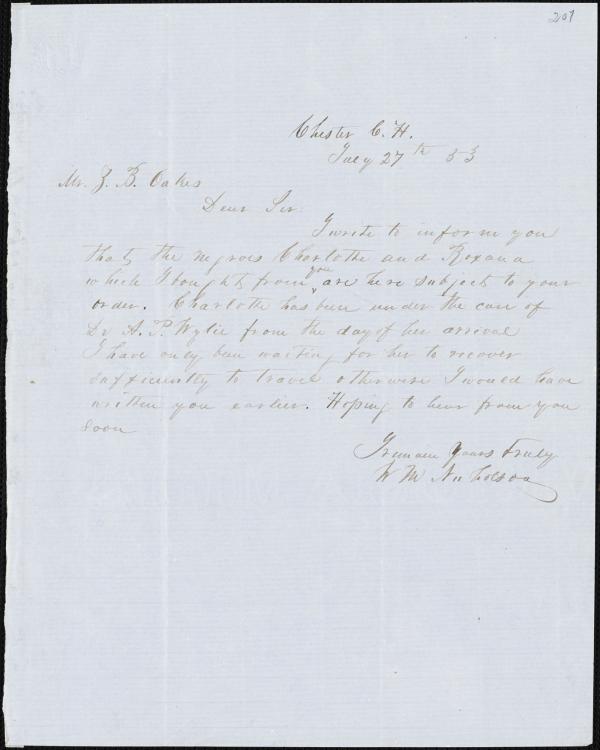 207
Chester C. H.
July 27th 53
Mr. Z. B. Oakes
Dear Sir.
I write to inform you
that the negroes Charlotte and Roxana
which I bought from you are here subject to your
order. Charlotte has been under the care of
Dr A. P. Wylie from the day of her arrival
I have only been waiting for her to recover
sufficiently to travel otherwise I would have
written you earlier. Hoping to hear from you
soon
I remain Yours Truly
W M Nicholson